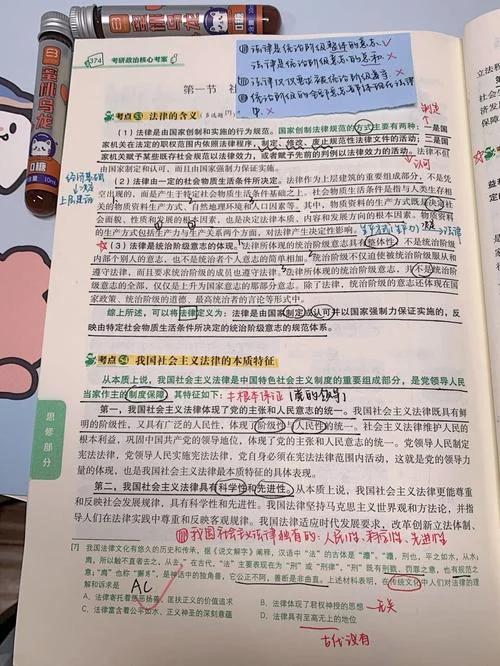 374 考研政治核心考案
法律是统治阶级整体的意志 ✓
法律是统治阶级意志的总和 ×
第一节 社
考点53 法律的含义
(1)法律是由国家创制和实施的行为规范。国家创制法律规范的方式主要有两种:一是国
家机关在法定的职权范围内依照法律程序,制定、修改、废止规范性法律文件的活动;二是国
家机关赋予某些既存社会规范以法律效力,或者赋予先前的判例以法律效力的活动。法律不但
由国家制定和认可,而且由国家强制力保证实施。
认可
(2)法律由一定的社会物质生活条件所决定。法律作为上层建筑的重要组成部分,不是凭
空出现的,
的物质资料生产方式、自然地理环境和人口因素等。其中,物质资料的生产方式既是决定
社会面貌、性质和发展的根本因素,也是决定法律本质、内容和发展方向的根本因素。物质资料
的生产方式包括生产力与生产关系两个方面,对法律产生决定性影响。
(3)法律是统治阶级意志的体现。法律所体现的统治阶级意志具有整体性,不是统治阶级
内部个别人的意志,也不是统治者个人意志的简单相加。统治阶级不仅迫使被统治阶级服从和
遵守法律,而且要求统治阶级的成员也遵守法律。法律所体现的统治阶级意志,并不是统治阶级
意志的全部,仅仅是上升为国家意志的那部分意志。除了法律,统治阶级的意志还体现在国
家政策、统治阶级的道德、最高统治者的言论等形式中。
综上所述,可以将法律定义为:法律是由国家制定或认可并以国家强制力保证实施的,反
映由特定社会物质生活条件所决定的统治阶级意志的规范体系。
考点54 我国社会主义法律的本质特征
从本质上说,我国社会主义法律是中国特色社会主义制度的重要组成部分,是党领导人民
当家作主的制度保障。其特征如下:
第一,我国社会主义法律体现了党的主张和人民意志的统一。我国社会主义法律既具有鲜
明的阶级性,又具有广泛的人民性,体现了阶级性与人民性的统一。我国社会主义法律维护人民的
根本利益,巩固中国共产党的领导地位,体现了党的主张和人民意志的统一。党领导人民制定
宪法法律,党领导人民实施宪法法律,党自身必须在宪法法律范围内活动,这就是党的领导力
量的体现,也是我国社会主义法律最本质特征的具体表现。
第二,我国社会主义法律具有科学性和先进性。从本质上说,我国社会主义法律更能尊重
和反映社会发展规律,具有科学性和先进性。我国法律坚持马克思主义世界观和方法论,并指
导人们在法律实践中尊重和反映客观规律。我国法律适应时代发展要求,改革创新立法体制、
我国社会主义法律独有的:人民性、科学性、先进性
[7] 我国法律文化有悠久的历史和传承,据《说文解字》阐释,汉语中“法”的古体是“灋”,“灋,刑也,平之如水,从水;
AC
A.法律寄托着惩恶扬善、匡扶正义的价值追求
B.法律体现了君权神授的思想 无关
C.法律富含着公平如水、正义神圣的深刻意蕴
D.法律具有至高无上的地位
古代没有
思修部分